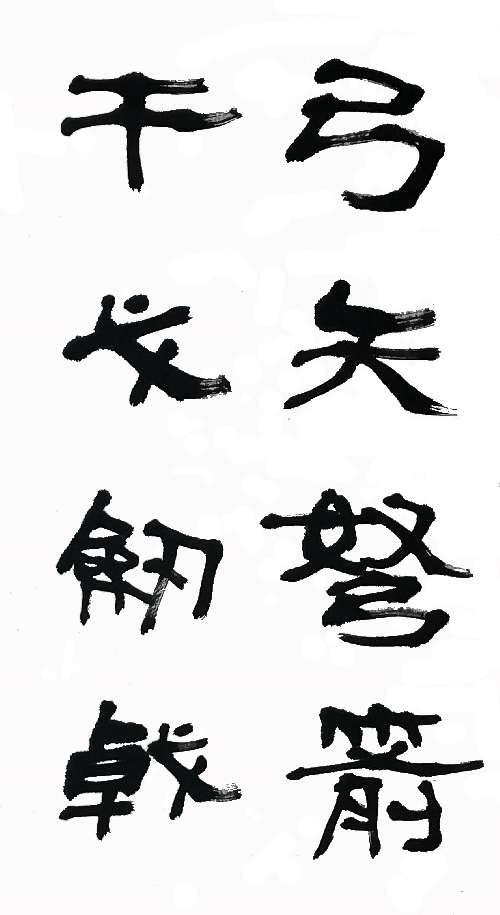 弓矢弩箭
干戈劒戟